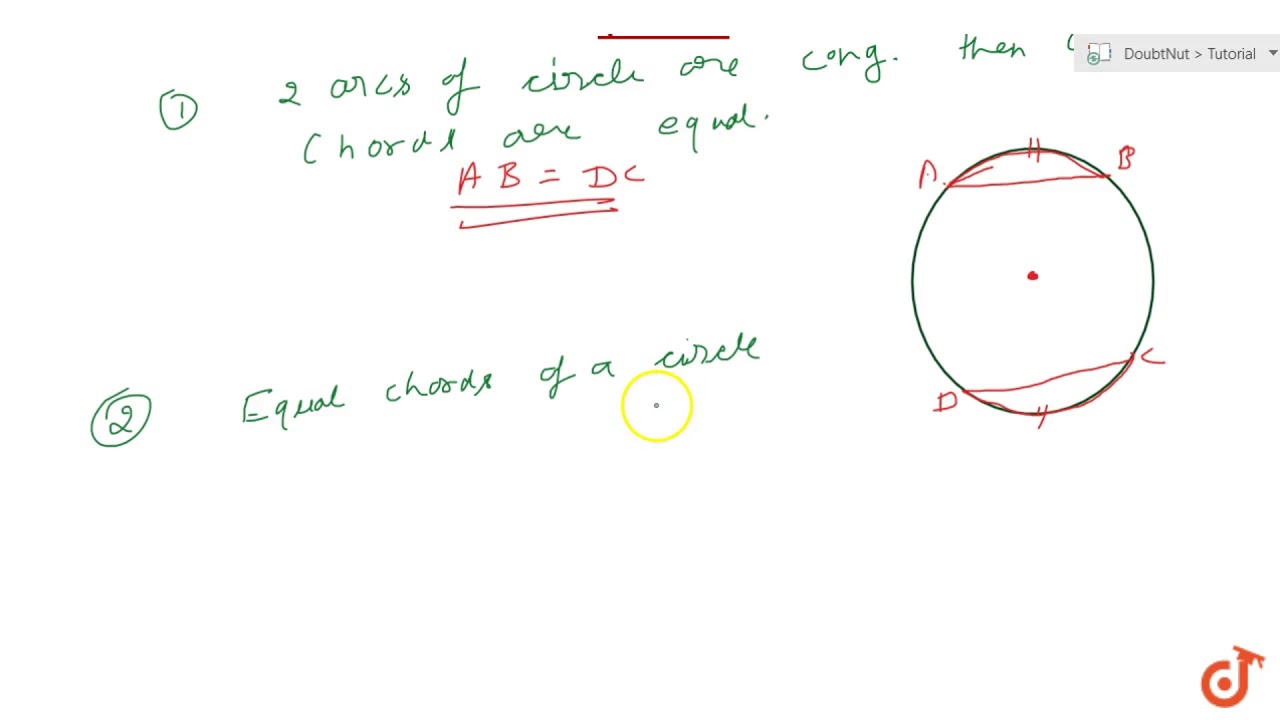 DoubtNut > Tutorial
① 2 arcs of circle are cong. then
Chords are equal.
AB = DC
A B
D C
② Equal chords of a circle